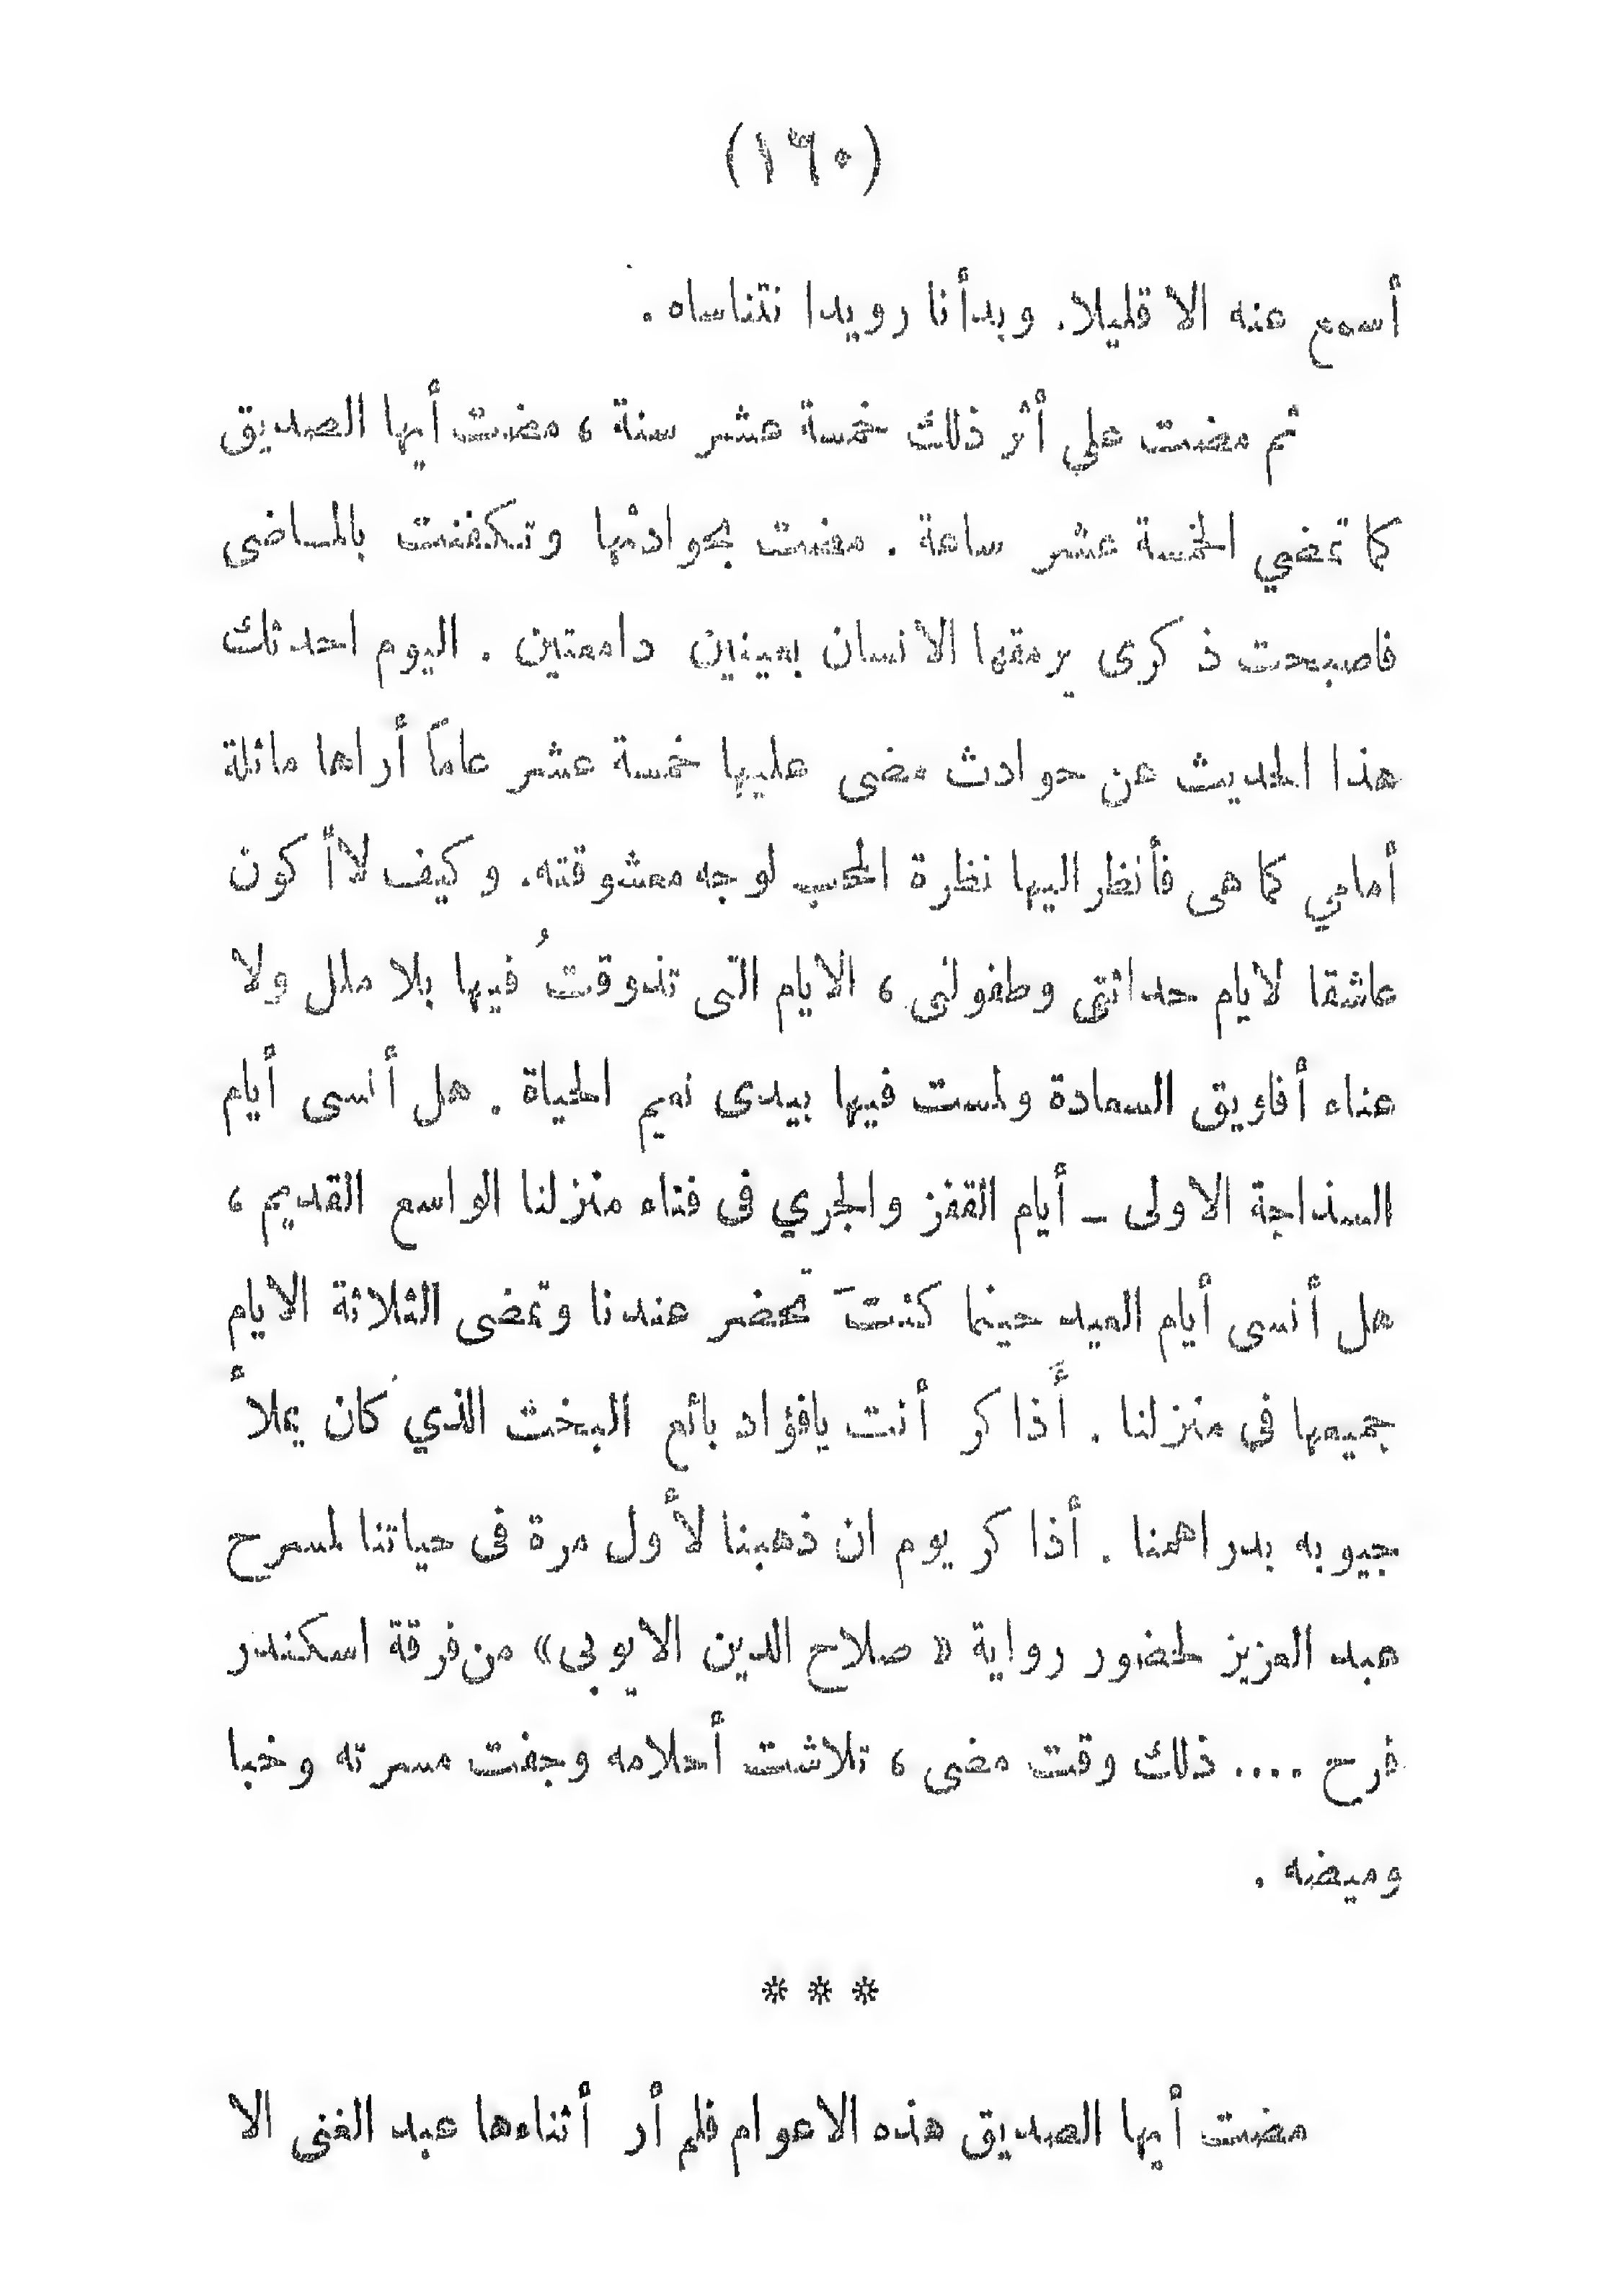 (١٦٠)
أسمع عنه الا قليلا. وبدأنا رويدا نتناساه .
ثم مضت على أثر ذلك خمسة عشر سنة ، مضت أيها الصديق
كما تمضي الخمسة عشر ساعة . مضت بحوادثها وتكفنت بالماضى
فاصبحت ذكرى يرمقها الانسان بعينين دامعتين . اليوم احدثك
هذا الحديث عن حوادث مضى عليها خمسة عشر عاماً أراها ماثلة
أمامي كما هى فأنظر اليها نظرة المحب لوجه معشوقته. وكيف لا أكون
عاشقا لايام حداثتى وطفولتى ، الايام التى تذوقتُ فيها بلا ملل ولا
عناء أفاويق السعادة ولمست فيها بيدى نعيم الحياة . هل أنسى أيام
السذاجة الاولى ــ أيام القفز والجري فى فناء منزلنا الواسع القديم ،
هل أنسى أيام العيد حينما كنتَ تحضر عندنا وتمضى الثلاثة الايام
جميعها فى منزلنا . أَذاكر أنت يافؤاد بائع البخث الذي كان يملأ
جيوبه بدراهمنا . أذاكر يوم ان ذهبنا لأول مرة فى حياتنا لمسرح
عبد العزيز لحضور رواية « صلاح الدين الايوبى» من فرقة اسكندر
فرح .... ذلك وقت مضى ، تلاشت أحلامه وجفت مسرته وخبا
وميضه .
* * *
مضت أيها الصديق هذه الاعوام فلم أر أثناءها عبد الغنى الا